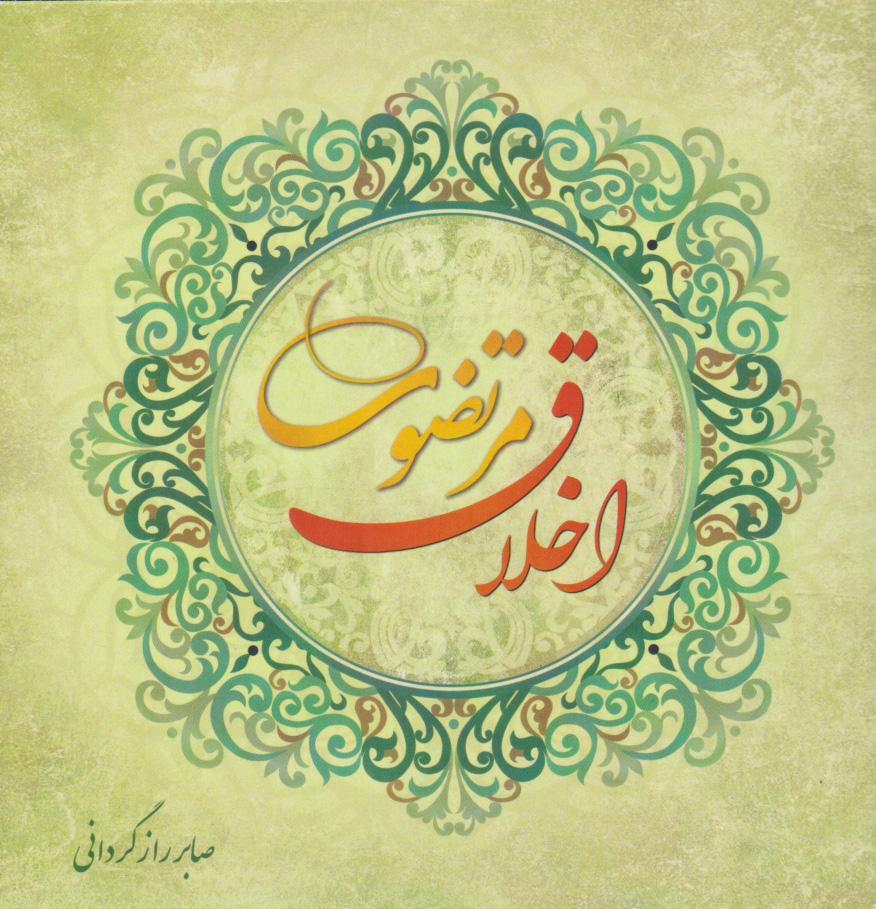 اخلاق مرتضوی
صابر رازگردانی